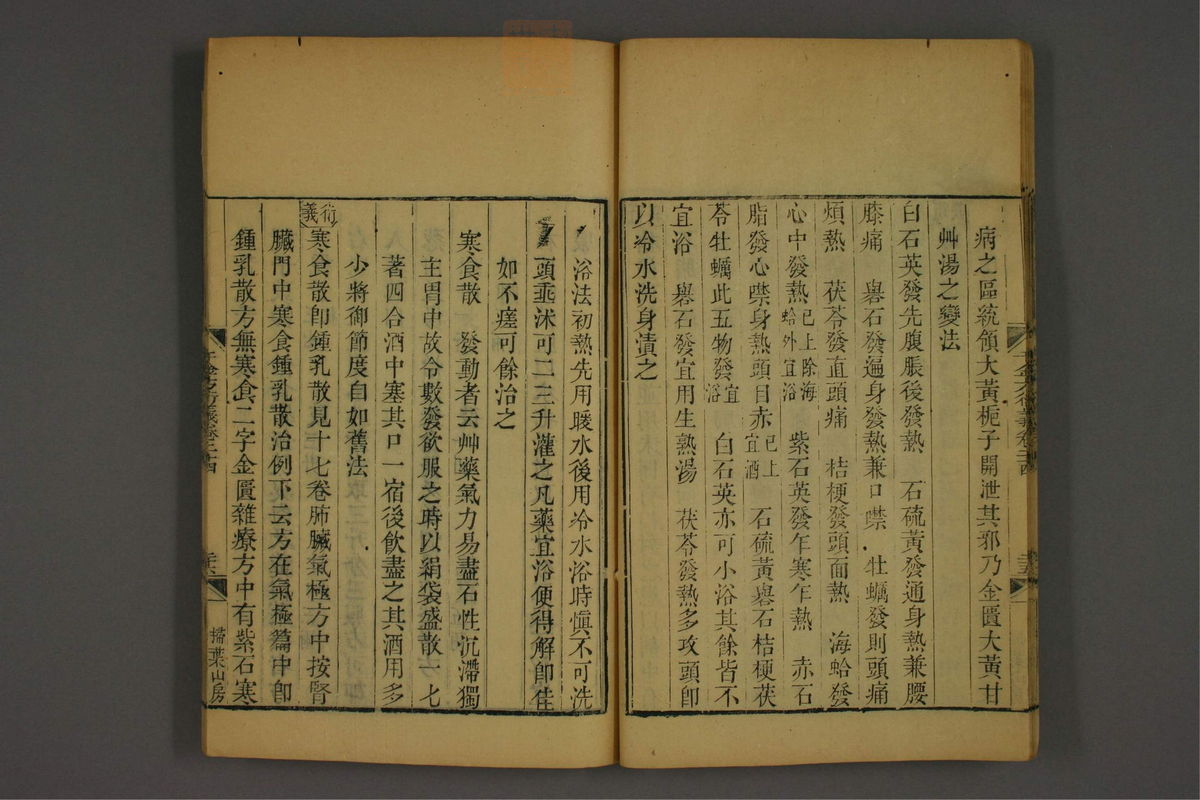 病之區統領大黃梔子開泄其邪乃金匱大黃甘
艸湯之變法
白石英發先腹脹後發熱　石硫黃發通身熱兼腰
膝痛　礜石發遍身發熱兼口噤　牡蠣發則頭痛
煩熱　茯苓發直頭痛　桔梗發頭面熱　海蛤發
心中發熱已上除海蛤外宜浴　紫石英發乍寒乍熱　赤石
脂發心噤身熱頭目赤已上宜酒　石硫黃礜石桔梗茯
苓牡蠣此五物發宜浴　白石英亦可小浴其餘皆不
宜浴　礜石發宜用生熟湯　茯苓發熱多攻頭即
以冷水洗身漬之
浴法初熱先用暖水後用冷水浴時慎不可洗
頭垂沐可二三升灌之凡藥宜浴便得解即佳
如不瘥可餘治之
寒食散　發動者云艸藥氣力易盡石性沉滯獨
主胃中故令數發欲服之時以絹袋盛散一七
著四合酒中塞其口一宿後飲盡之其酒用多
少將御節度自如舊法
衍義寒食散即鍾乳散見十七卷肺臟氣極方中按腎
臟門中寒食鍾乳散治例下云方在氣極篇中即
鍾乳散方無寒食二字金匱雜療方中有紫石寒
掃葉山房